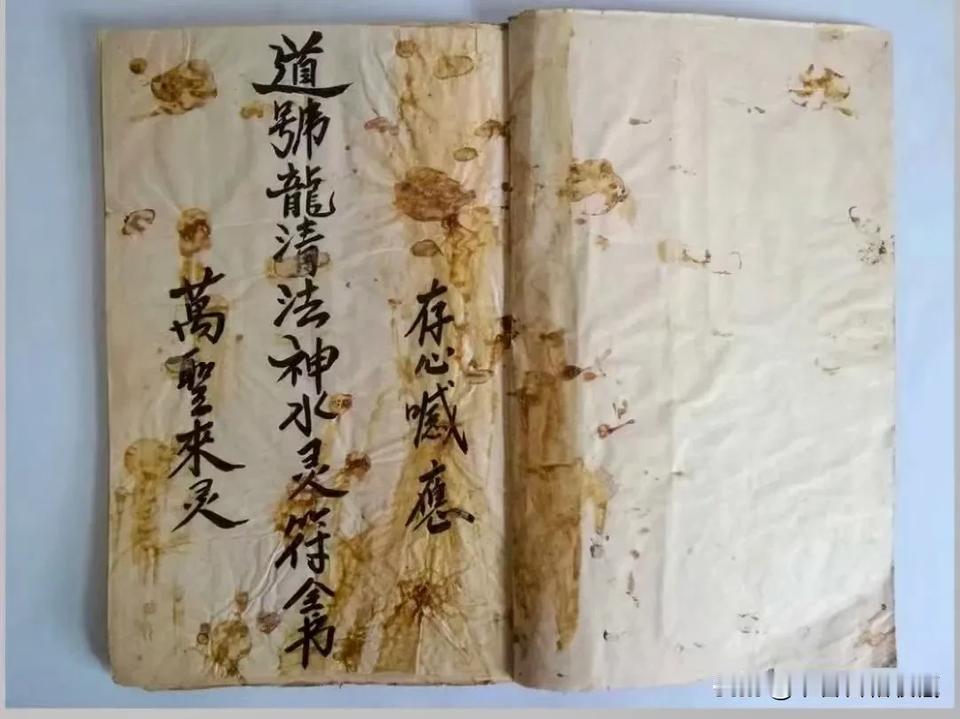 存心喊應
道號龍清法神水灵符全书
萬聖來灵